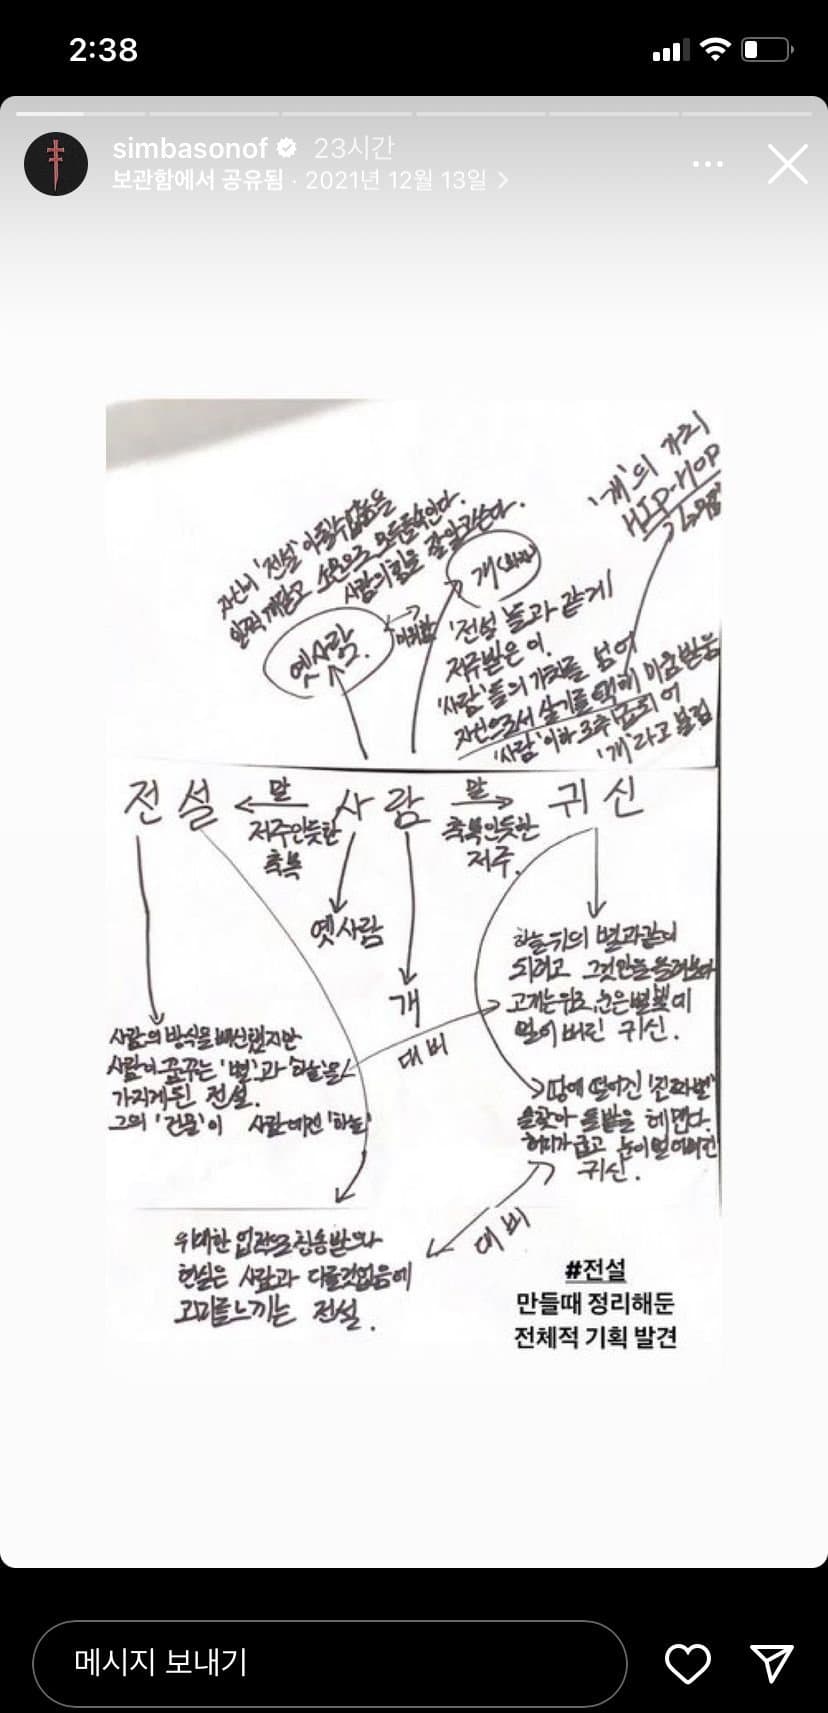 2:38
simbasonof 23시간
보관함에서 공유됨 · 2021년 12월 13일 >
'개'의 거리
HIP-HOP
자신이 '전설'이 될 수 없음을
일찍 깨닫고 소문으로 모두를 속인다.
사람의 힘을 잘 알고 쓴다.
옛사람.
개
'전설'들과 같게
저주받은 이.
'사람'들의 가치를 넘어
자신으로서 살기를 택해 미움받음
'사람' 이하로 추급되어
'개'라고 불림
전설
말
사람
말
귀신
저주인듯한
축복
축복인듯한
저주.
옛사람
개
사람의 방식을 배신했지만
사람이 꿈꾸는 '별'과 '하늘'을
가지게 된 전설.
그의 '건물'이 사람에겐 '하늘'
하늘 위의 별과 같이
되려고 그것만을 올려보다
고개는 위로, 눈은 별빛에
멀어 버린 귀신.
대비
땅에 떨어진 '진짜별'
을 찾아 돌밭을 헤맨다.
허리가 굽고 눈이 멀어버린
귀신.
대비
위대한 업적으로 칭송받으나
현실은 사람과 다를것 없음에
괴리를 느끼는 전설.
#전설
만들때 정리해둔
전체적 기획 발견
메시지 보내기